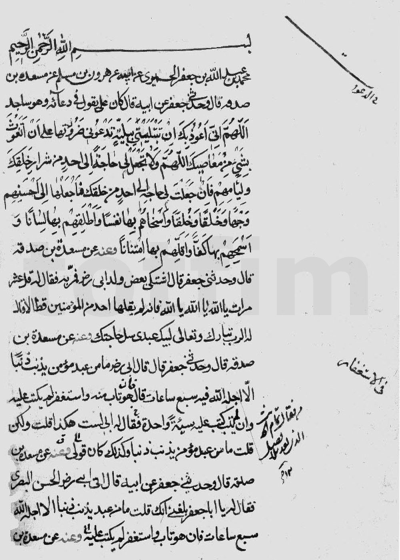 بسم الله الرحمن الرحيم
محمد بن عبد الله بن جعفر الحميري عن ابيه عن هرون بن مسلم عن مسعدة بن
صدقه قال وحدثني جعفر عن ابيه قال كان علي يقول في دعائه وهو ساجد
اللهم اني اعوذ بك ان تبتليني ببلية تدعوني ضرورتها على ان اتغوث
بشيء من معاصيك اللهم ولا تجعل لي حاجة الى احد من شرار خلقك
ولئامهم فان جعلت لي حاجة الى احد من خلقك فاجعلها الى احسنهم
وجها وخلقا وخلقا واسخاهم بها نفسا واطلقهم بها لسانا و
اسمحهم بها كفا واقلهم بها امتنانا وعنه عن مسعدة بن صدقه
قال وحدثني جعفر قال اشتكى بعض ولد ابي رض فمر به فقال له قل عشر
مرات يا الله يا الله يا الله فانه لم يقلها احد من المؤمنين قط الا قال
له الرب تبارك وتعالى لبيك عبدي سل حاجتك وعنه عن مسعدة بن
صدقه قال وحدثني جعفر قال قال ابي رض ما من عبد مؤمن يذنب ذنبا
الا اجله الله فيه سبع ساعات فان هو تاب منه واستغفر لم يكتب عليه
وان كتب عليه سيئة واحدة فقال له ابي ليست هكذا قلت ولكن
قلت ما من عبد مؤمن يذنب ذنبا وكذلك كان قولي وعنه عن مسعدة بن
صدقه قال وحدثني جعفر عن ابيه قال اتى ابي رض الحسن البصري
فقال له يا ابا جعفر بلغني انك قلت ما من عبد يذنب ذنبا الا اجله الله
سبع ساعات فان هو تاب استغفر لم يكتب عليه وعنه عن مسعدة
في الدعوا
في الاستغفار